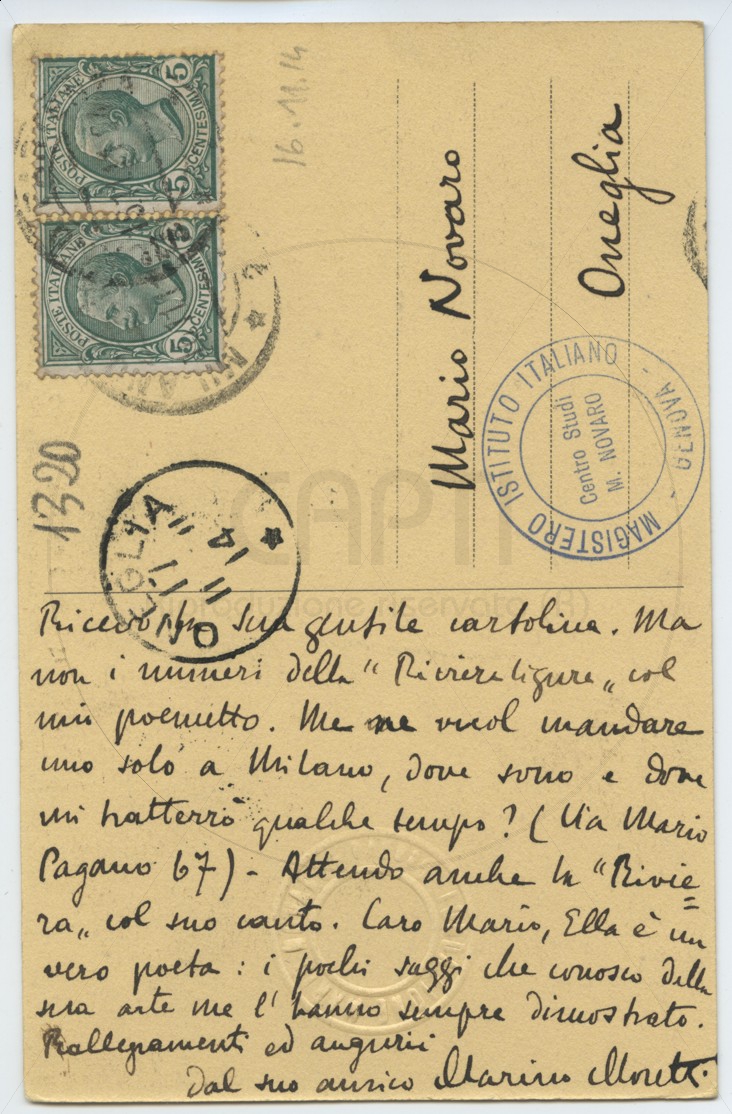 POSTE ITALIANE
5 CENTESIMI 5
POSTE ITALIANE
5 CENTESIMI 5
16.11.14
MILANO
1320
ONEGLIA
11
14
Mario Novaro
Oneglia
MAGISTERO ISTITUTO ITALIANO - GENOVA -
Centro Studi
M. NOVARO
CAPTI
riproduzione riservata
Ricevo sua gentile cartolina. Ma
non i numeri della "Riviera ligure" col
mio poemetto. Me ne vuol mandare
uno solo a Milano, dove sono e dove
mi tratterrò qualche tempo? (Via Mario
Pagano 67) - Attendo anche la "Rivie=
ra" col suo canto. Caro Mario, Ella è un
vero poeta: i pochi saggi che conosco della
sua arte me l'hanno sempre dimostrato.
Rallegramenti ed augurii
dal suo amico Marino Moretti